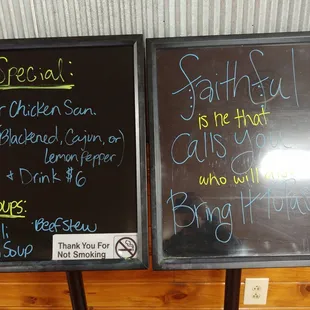 Special:
Chicken San.
Blackened, Cajun, or)
lemon Pepper)
+ Drink $6
Beef Stew
Soup
Thank You For
Not Smoking
faithful
is he that
calls you
who will
Bring It